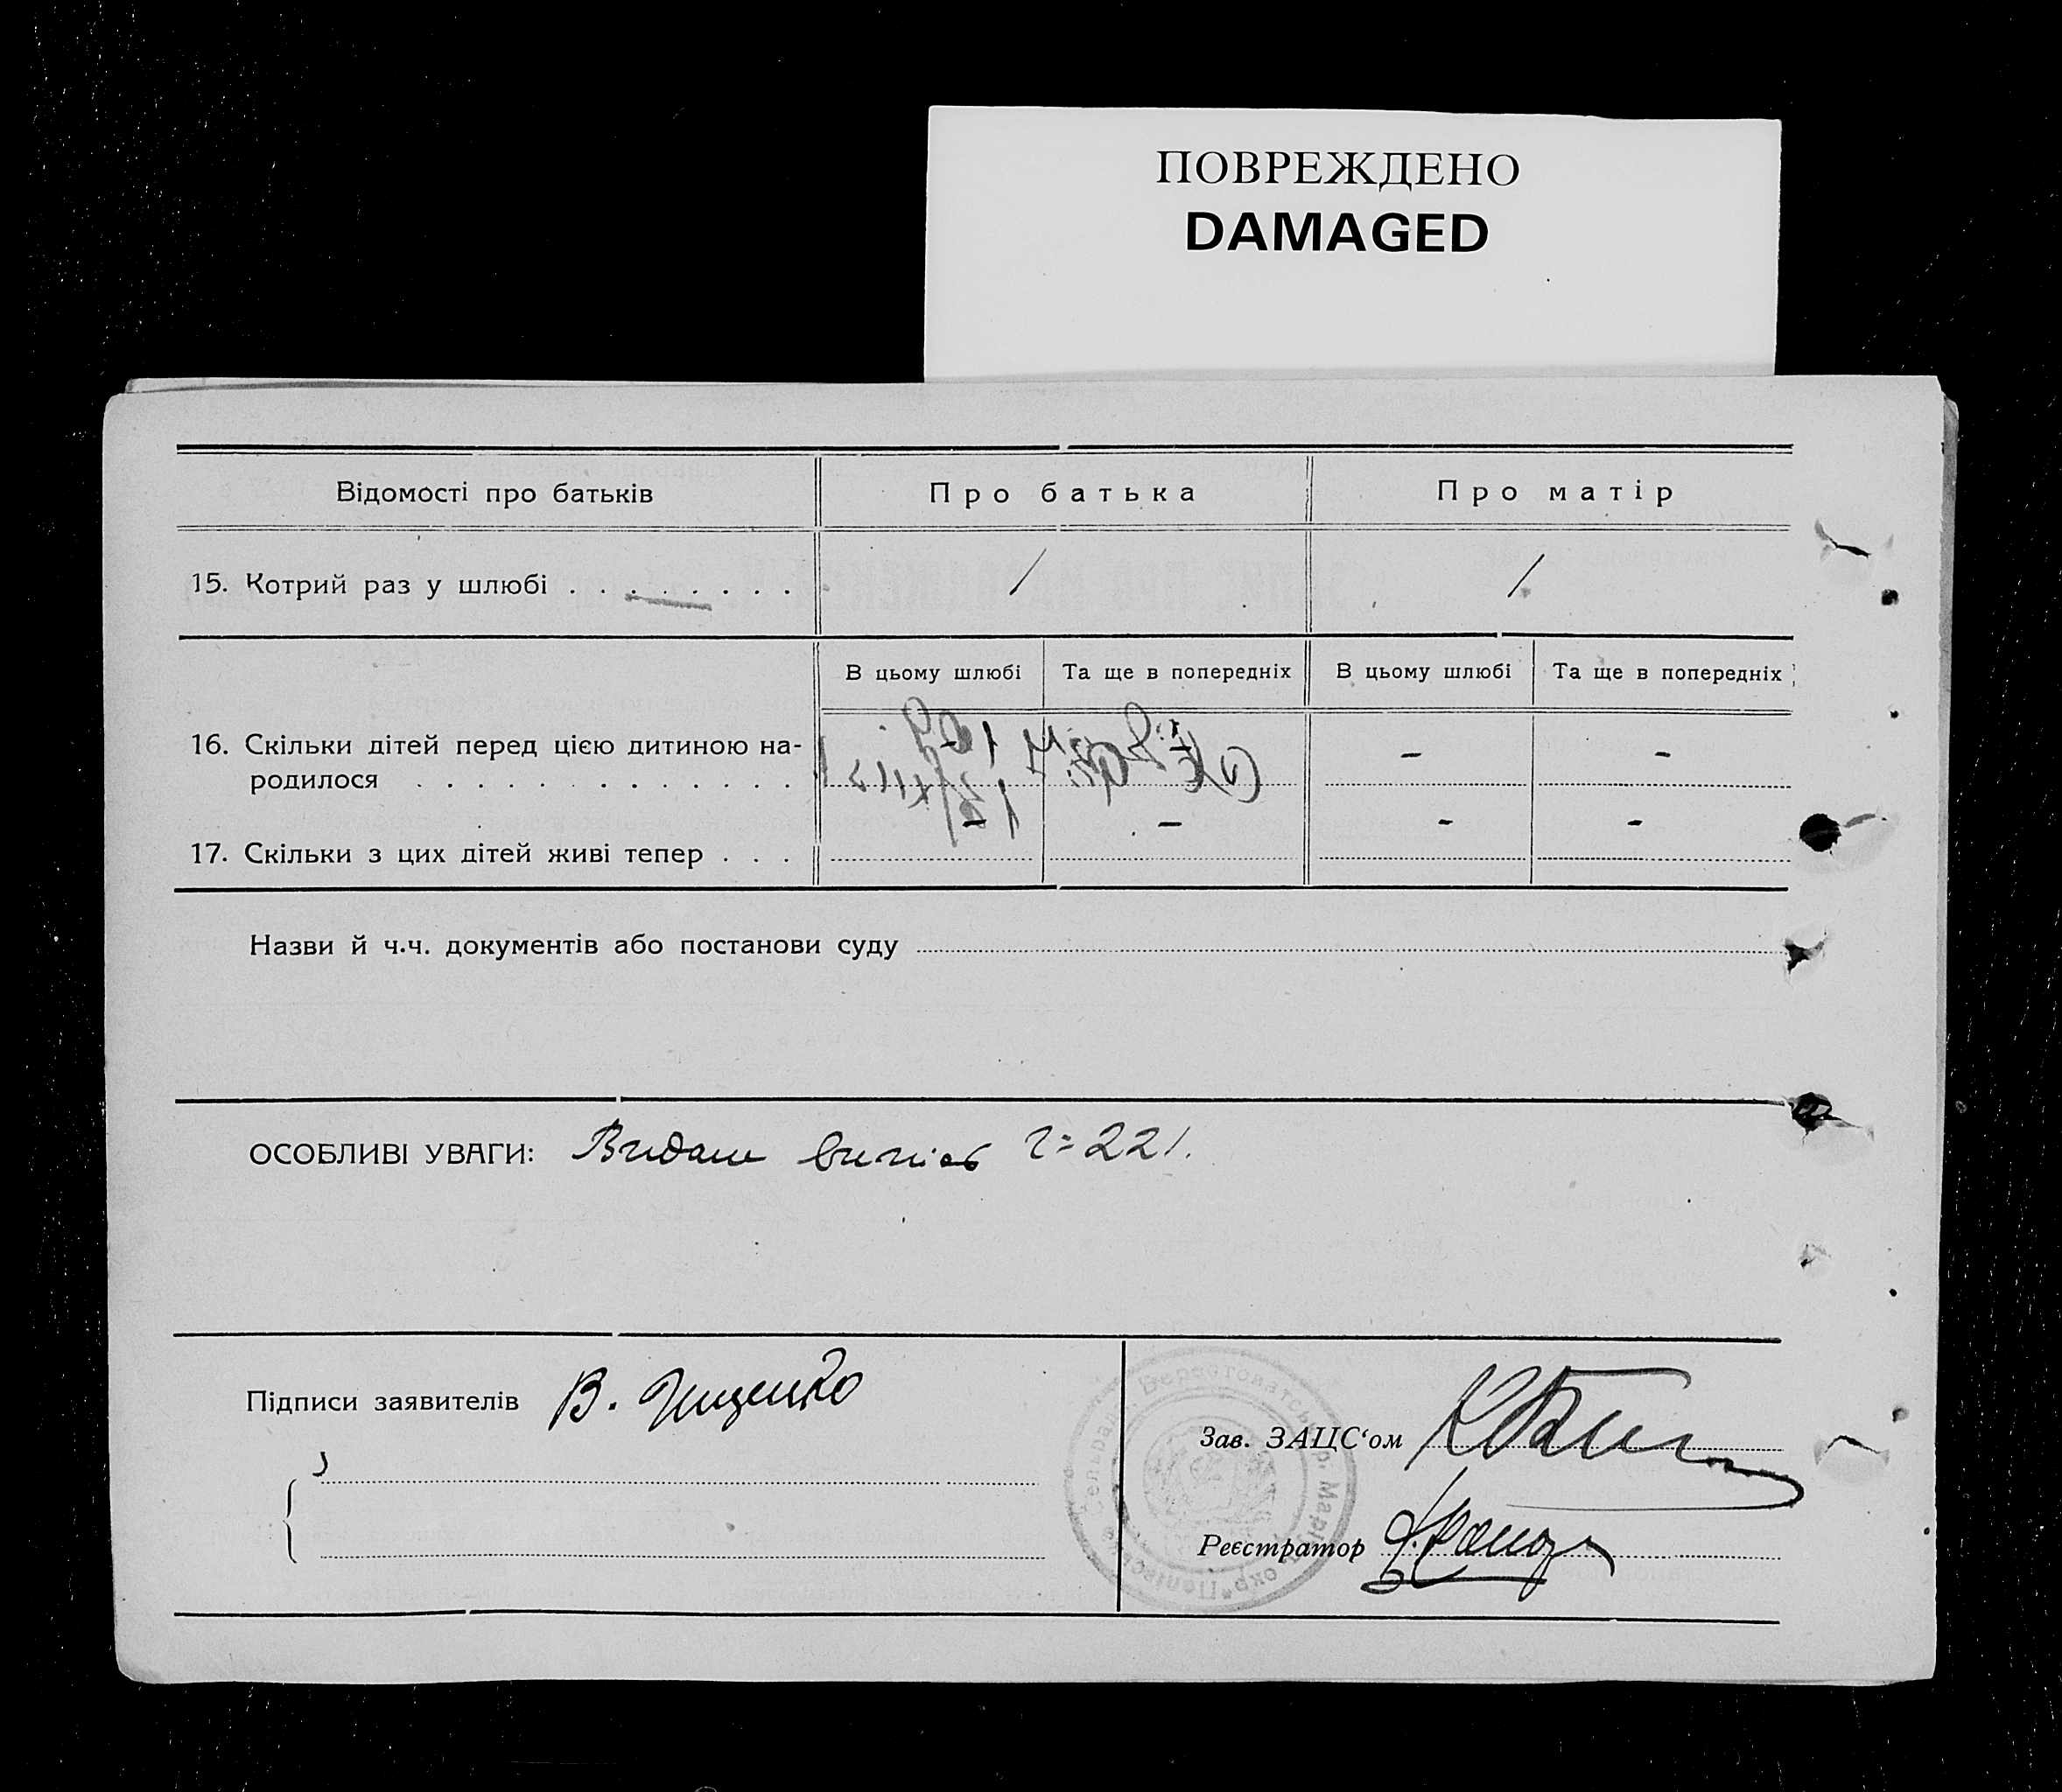 ПОВРЕЖДЕНО
DAMAGED
Відомості про батьків Про батька Про матір
15. Котрий раз у шлюбі . . . . . . . . / /
В цьому шлюбі Та ще в попередніх В цьому шлюбі Та ще в попередніх
16. Скільки дітей перед цією дитиною на-
родилося . . . . . . . . . . . . . – –
17. Скільки з цих дітей живі тепер . . . – – – –
Назви й ч.ч. документів або постанови суду
ОСОБЛИВІ УВАГИ: Видано 221.
Підписи заявителів В. Іщенко
Зав. ЗАЦС‘ом
Реєстратор